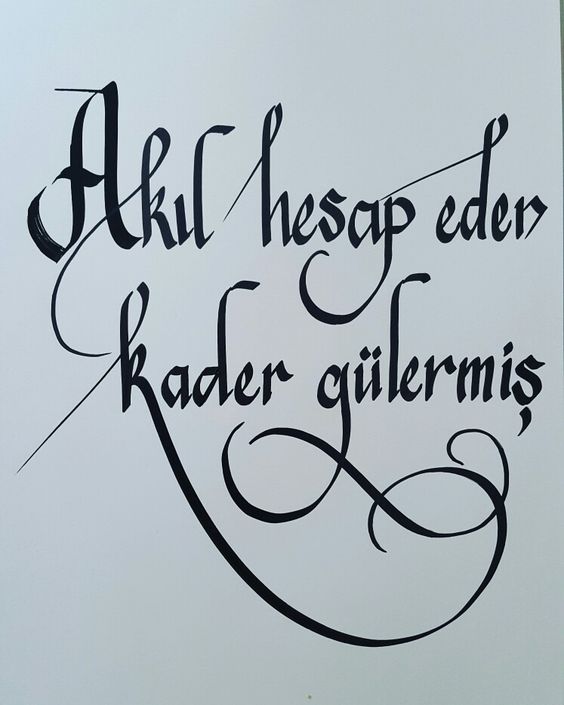 Akıl hesap eden
kader gülermiş